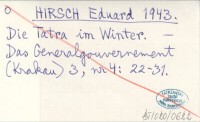 o HIRSCH Eduard 1943.
Die Tatra im Winter. —
Das Generalgouvernement
(Krakau) 3, nr 4: 22-31.